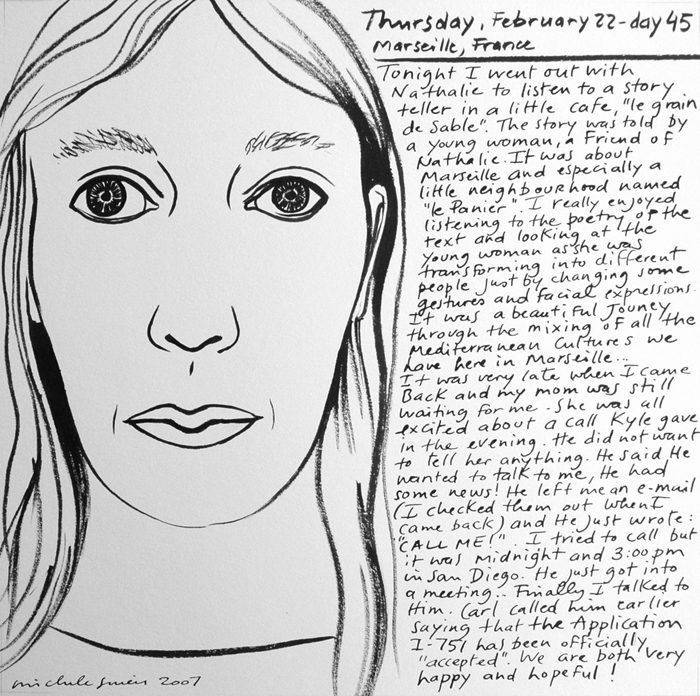 Thursday, February 22 - day 45
Marseille, France
Tonight I went out with
Nathalie to listen to a story
teller in a little cafe, "le grain
de Sable". The story was told by
a young woman, a Friend of
Nathalie. It was about
Marseille and especially a
little neighbourhood named
"le Panier". I really enjoyed
listening to the poetry of the
text and looking at the
young woman as she was
transforming into different
people just by changing some
gestures and facial expressions.
It was a beautiful Jouney
through the mixing of all the
Mediterranean Cultures we
have here in Marseille...
It was very late when I came
Back and my mom was still
waiting for me. She was all
excited about a call Kyle gave
in the evening. He did not want
to tell her anything. He said He
wanted to talk to me, He had
some news! He left me an e-mail
(I checked them out when I
came back) and He just wrote:
"CALL ME!". I tried to call but
it was midnight and 3:00 pm
in San Diego. He just got into
a meeting.. Finally I talked to
Him. Carl called him earlier
saying that the Application
I-751 has been officially
"accepted". We are both very
happy and hopeful!
2007